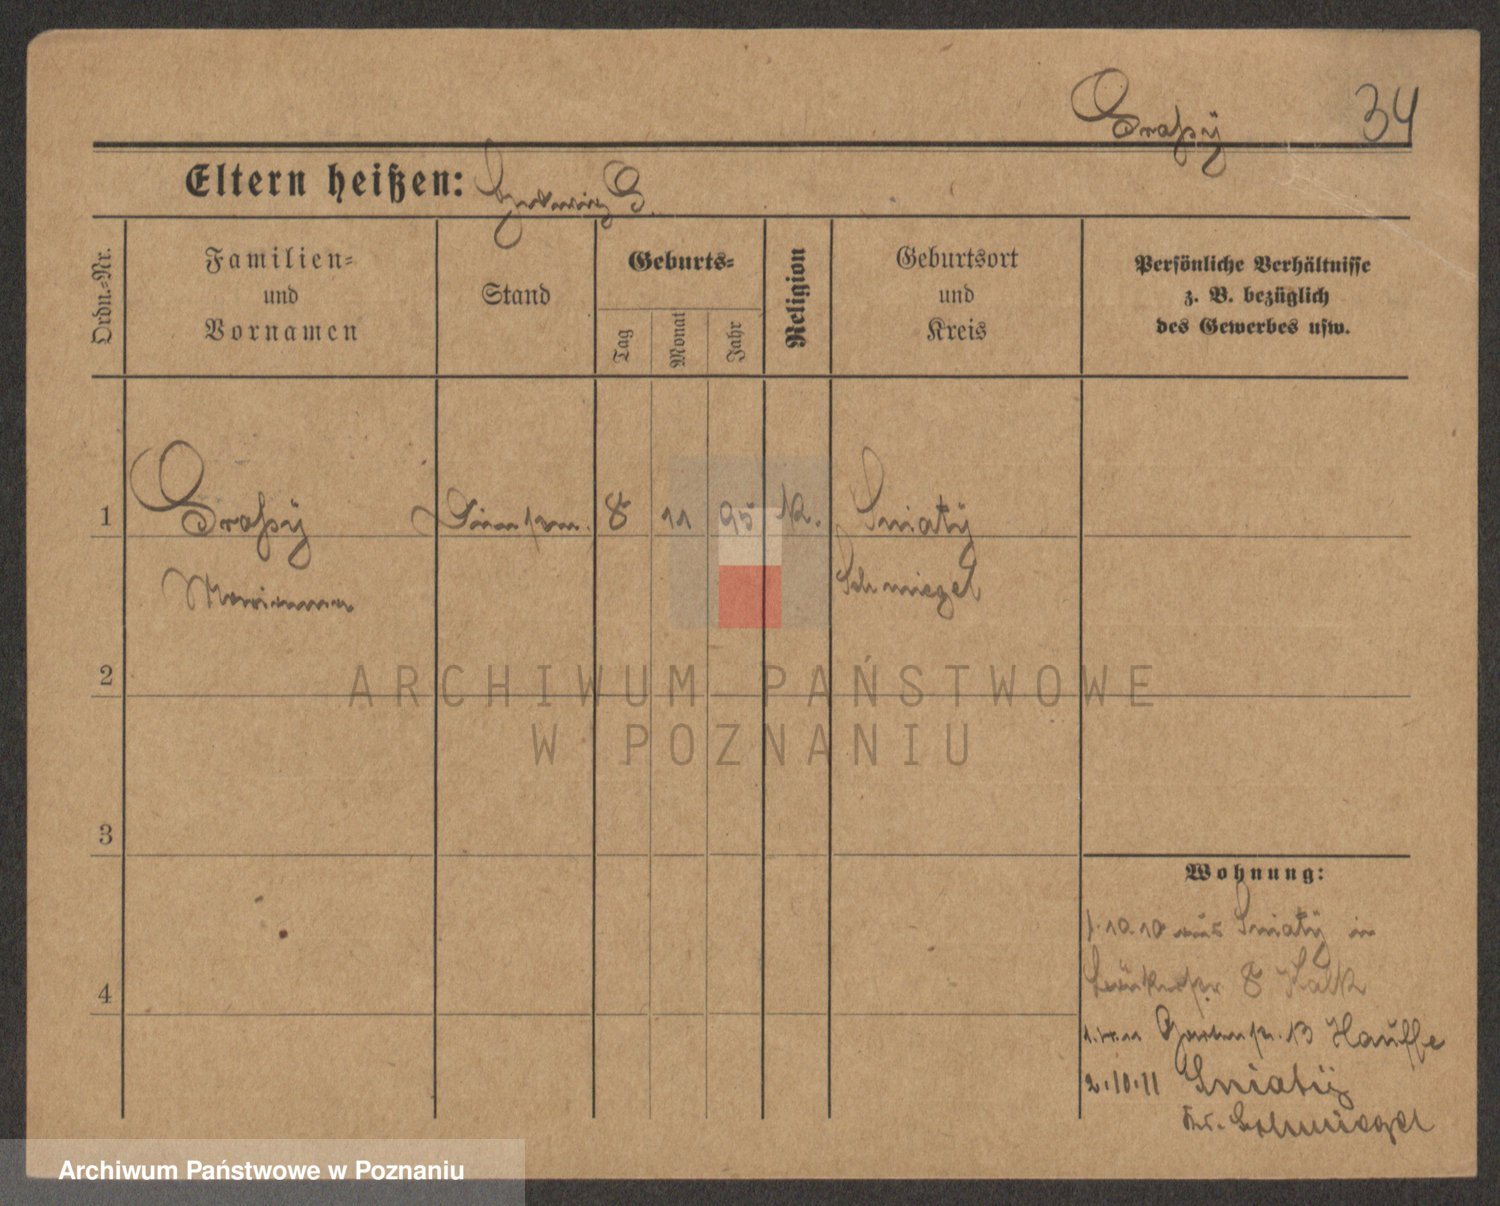 Graßy 34
Eltern heißen: Hedwig G.
Ordn.-Nr.
Familien-
und
Vornamen
Stand
Geburts-
Tag
Monat
Jahr
Religion
Geburtsort
und
Kreis
Persönliche Verhältnisse
z. B. bezüglich
des Gewerbes usw.
1 Graßy 8 11 95 k. Sniatÿ
Marianna Schmiegel
2
ARCHIWUM PAŃSTWOWE
W POZNANIU
3
Wohnung:
1.10.10 aus Sniatÿ in
8 Kalk
Gartenstr. 13 Hauffe
4
2.10.11 Sniatÿ
Kr. Schmiegel
Archiwum Państwowe w Poznaniu